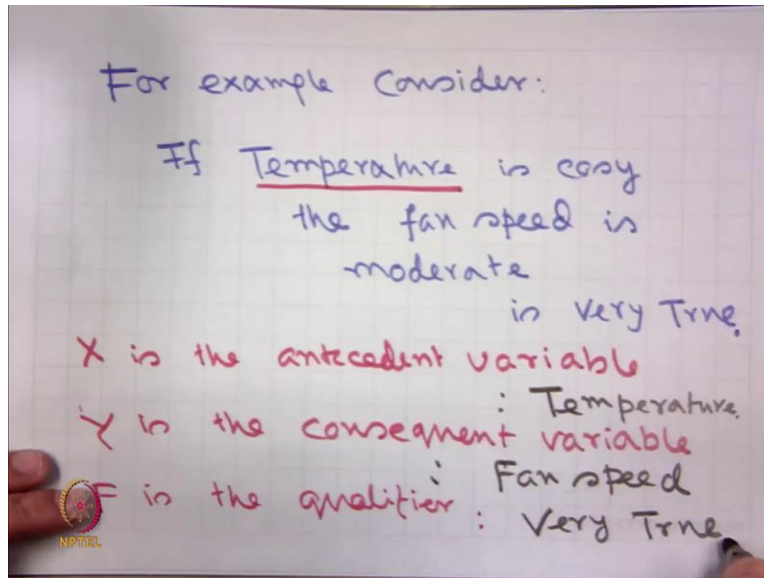 For example Consider:
If Temperature is cosy
the fan speed is
moderate
is Very True.
X is the antecedent variable
: Temperature.
Y is the consequent variable
: Fan speed
F is the qualifier : Very True
NPTEL